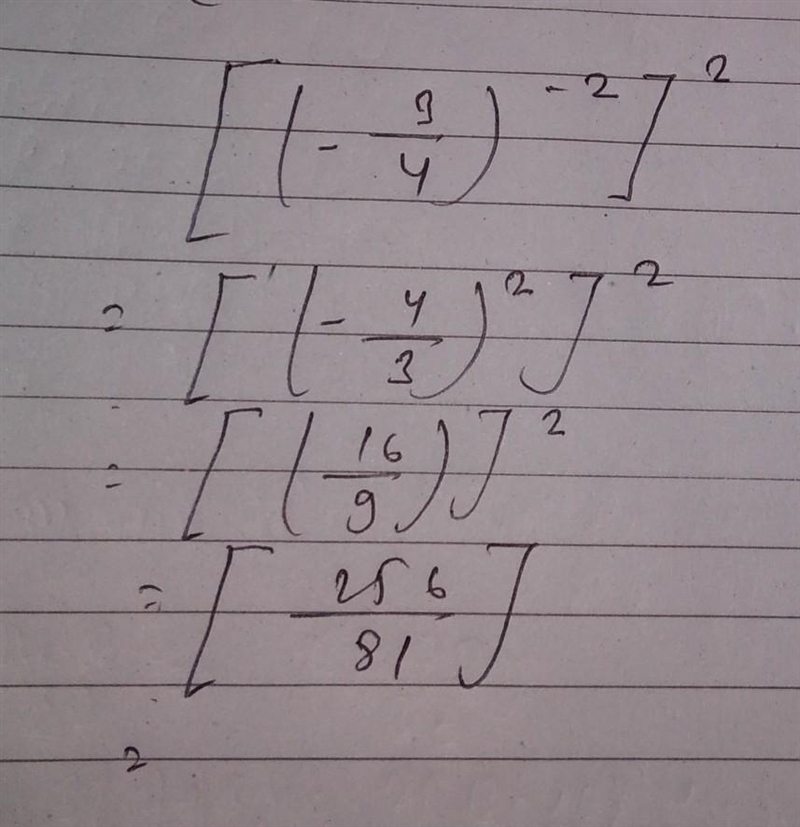 [(-3/4)^-2]^2
= [(-4/3)^2]^2
= [(16/9)]^2
= [256/81]
=